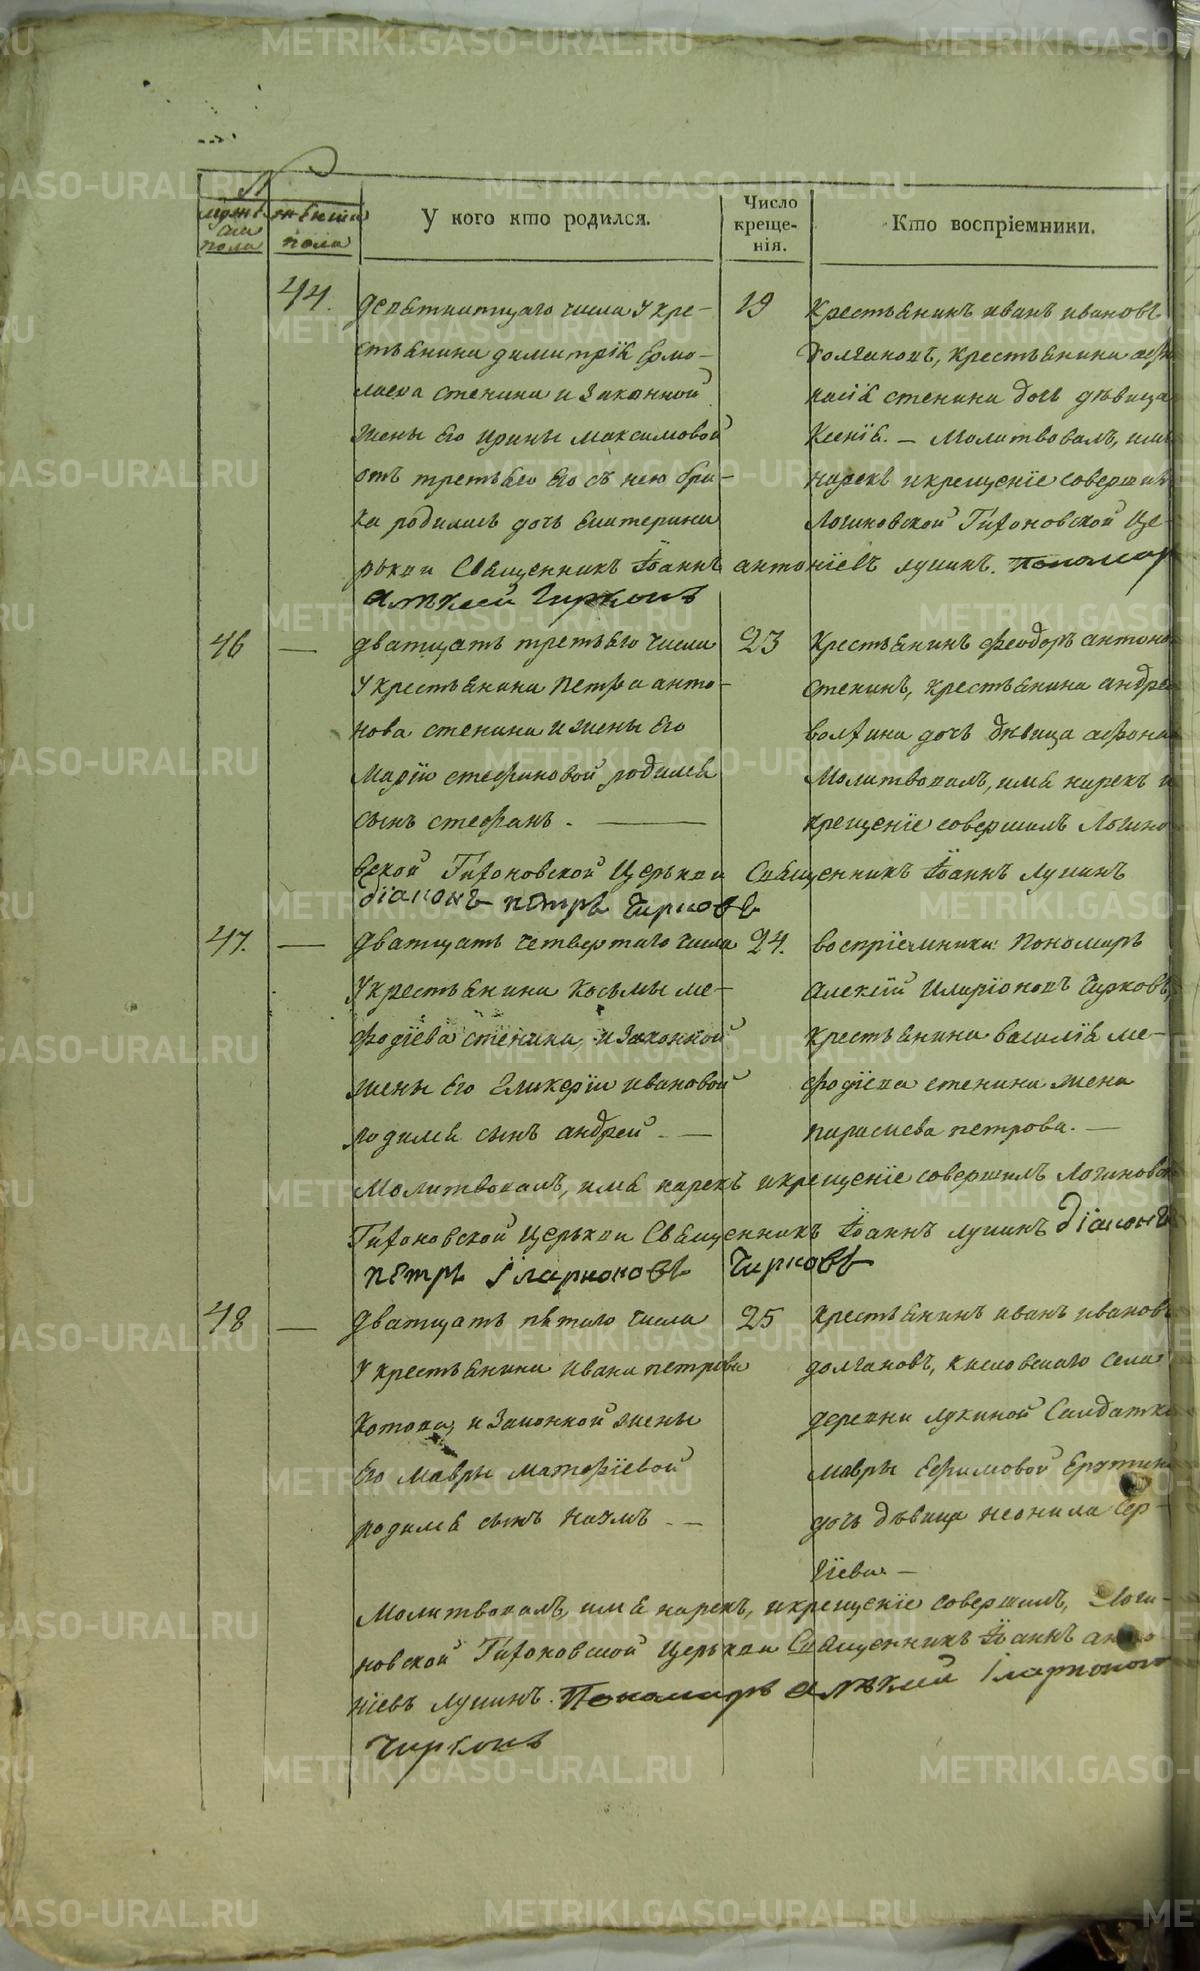 №
мужеска пола
женска пола
У кого кто родился.
Число крещенія.
Кто воспріемники.
44.
девятнатцаго числа У кре-
стьянина димитріа Ермо-
лаева стенина и Законной
жены Его ирины максимовой
отъ третьяго Его съ нею бра-
ка родилась дочь Екатерина
19
Крестьянинъ иванъ ивановъ
долгановъ, крестьянина
стенина дочь дѣвица
Ксеніа. — Молитвовалъ, имя
нарекъ и крещеніе совершилъ
Логиновской Тихоновской Це-
ркви Священникъ Іоаннъ антоніевъ лупинъ. Пономарь
Алѣксей Чирковъ
46 —
дватцать третьяго числа
У крестьянина Петра анто-
нова стенина и жены Его
Маріи стефановой родился
сынъ стефанъ. —
23
Крестьянинъ феодоръ антоно
стенинъ, крестьянина андре
дочь дѣвица афона
Молитвовалъ, имя нарекъ и
крещеніе совершилъ Логино
вской Тихоновской Церькви Священникъ Іоаннъ Лупинъ
діаконъ петръ Чирковъ
47. —
дватцать четвертаго числа
У крестьянина Косьмы ме-
фодіева стенина, и Законной
жены Его Гликеріи ивановой
родился сынъ андрей. —
24.
воспріемники: Пономарь
Алексій Иларіоновъ Чирковъ,
крестьянина василіа ме-
фодіева стенина жена
параскева петрова. —
Молитвовалъ, имя нарекъ и крещеніе совершилъ Логиновской
Тихоновской Церькви Священникъ Іоаннъ лупинъ діаконъ
петръ Іларионовъ Чирковъ
48 —
дватцать пятаго числа
У крестьянина Ивана петрова
Котова, и Законной жены
Его Мавры матфіевой
родился сынъ наумъ. —
25
Крестьянинъ иванъ ивановъ
долгановъ, кисловскаго села
деревни лукиной Салдатки
мавры Ефимовой
дочь дѣвица неонила Сер-
гіева. —
Молитвовалъ, имя нарекъ, и крещеніе совершилъ, Логи-
новской Тихоновской Церькви Священникъ Іоаннъ анто-
ніевъ лупинъ. Пономарь Алѣксей Іларионовъ
Чирковъ
METRIKI.GASO-URAL.RU